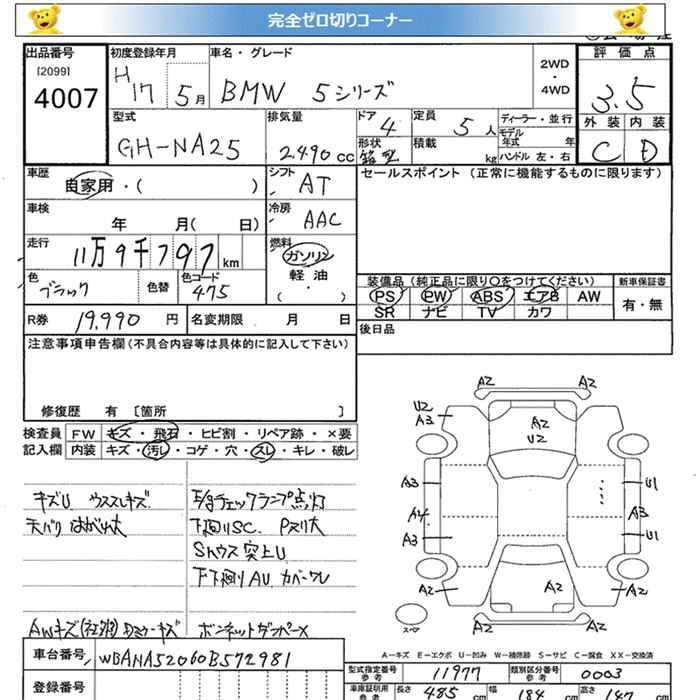 完全ゼロ切りコーナー
出品番号 初度登録年月 車名・グレード 評価点
[2099] 4007 H17 5月 BMW 5シリーズ 2WD・4WD 3.5
型式 排気量 ドア 定員 ディーラー・並行 外装 内装
GH-NA25 2490cc 4 5人 モデル年式 年 C D
形状 積載 kg ハンドル 左・右
車歴 シフト セールスポイント (正常に機能するものに限ります)
自家用・( ) AT
車検 冷房
年 月( 日) AAC
走行 燃料
11万9千797km ガソリン
軽油
( ・ )
色 色替 色コード 装備品 (純正品に限り○をつけてください) 新車保証書
ブラック 475 PS PW ABS エアB AW 有・無
SR ナビ TV カワ
R券 19,990円 名変期限 月 日 後日品
注意事項申告欄 (不具合内容等は具体的に記入して下さい)
修復歴 有 [箇所 ]
検査員 FW キズ・飛石・ヒビ割・リペア跡・×要
記入欄 内装 キズ・汚レ・コゲ・穴・スレ・キレ・破レ
キズU ウススレキズ E/gチェックランプ点灯
天バリ はがれ大 下廻りSC. Pスリ大
Sハウス突上U
下下廻りAU カバーワレ
AWキズ(社外) Dミラーキズ ボンネットダンパーX
A2 A2
U2 A3 A2 U2 A2
A3 U1
A4 A3
A3 U1
A2 A2 A2
A2 A2
スペア
A-キズ E-エクボ U-凹み W-補修跡 S-サビ C-腐食 XX-交換済
車台番号 WBANA52060B572981 型式指定番号 参考 11977 類別区分番号 参考 0003
登録番号 車庫証明用 参考 長さ 485cm 幅 184cm 高さ 147cm